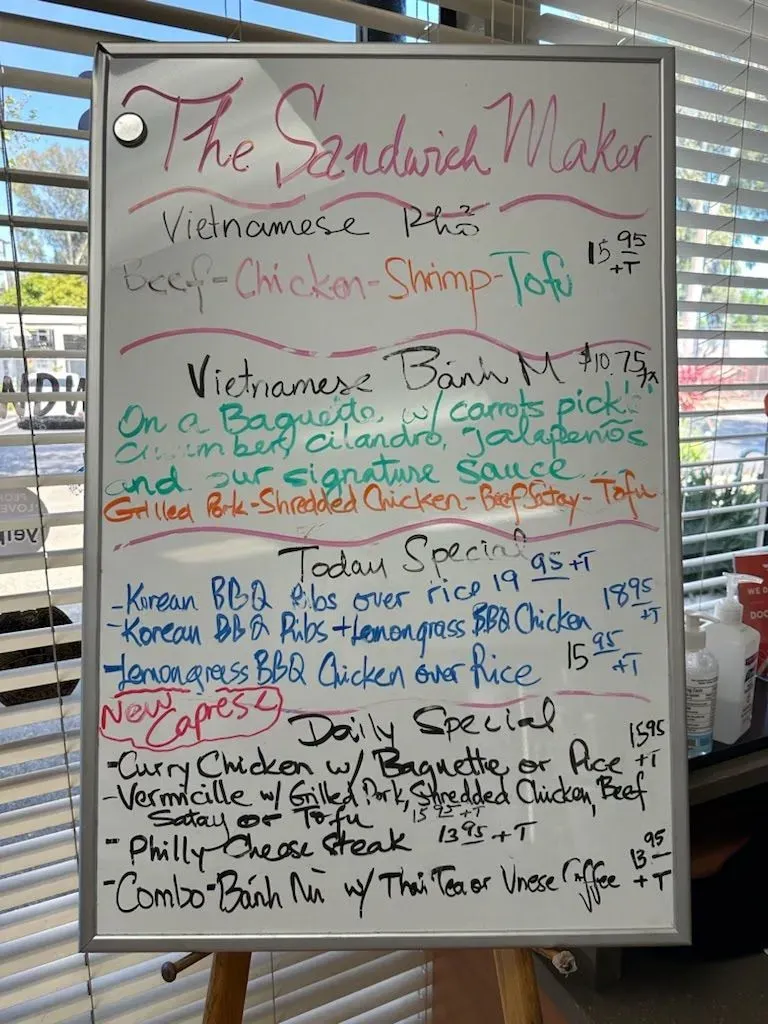 The Sandwich Maker
Vietnamese Phở
Beef-Chicken-Shrimp-Tofu 15 95 +T
Vietnamese Bánh M $10.75
On a Baguette w/ carrots pickl
Cucumber, cilandro, jalapeños
and our signature sauce...
Grilled Pork-Shredded Chicken-Beef Satay-Tofu
Today Special
-Korean BBQ Ribs over rice 19 95 +T
-Korean BBQ Ribs + Lemongrass BBQ Chicken 18 95 +T
-Lemongrass BBQ Chicken over Rice 15 95 +T
New Caprese
Daily Special
-Curry Chicken w/ Baguette or Rice 15 95 +T
-Vermicille w/ Grilled Pork, Shredded Chicken, Beef
Satay or Tofu 15 95 +T
-Philly Cheese Steak 13 95 +T
-Combo-Bánh Mì w/ Thai Tea or Vnese Coffee 13 95 +T
yelp